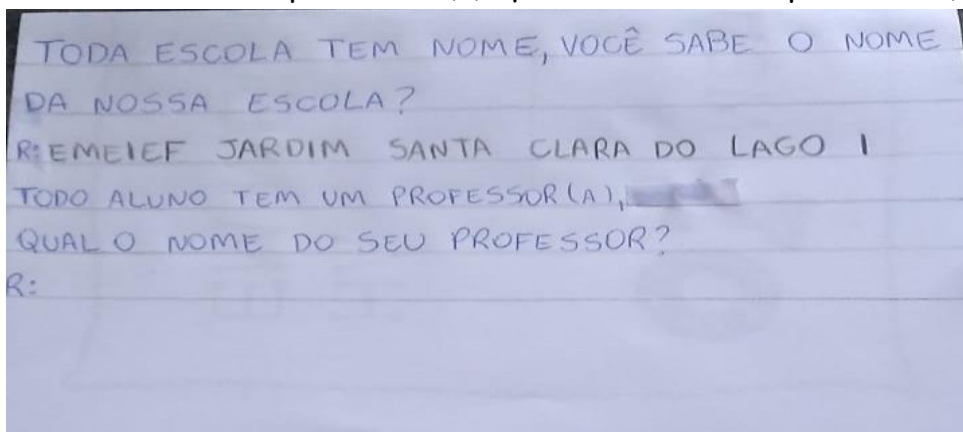 TODA ESCOLA TEM NOME, VOCÊ SABE O NOME
DA NOSSA ESCOLA?
R: EMEIEF JARDIM SANTA CLARA DO LAGO I
TODO ALUNO TEM UM PROFESSOR(A),
QUAL O NOME DO SEU PROFESSOR?
R: